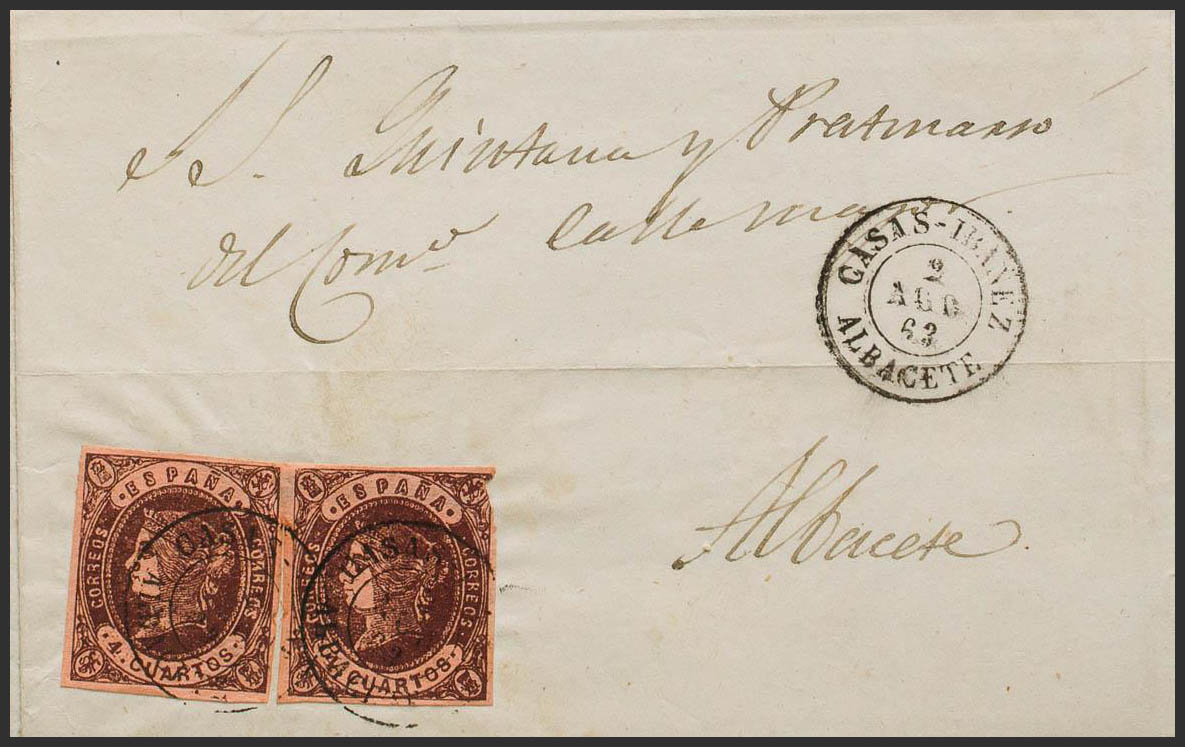 S. S. Quintana y Pratmarsó
del Comº Calle mayor
CASAS-IBAÑEZ
2
AGO
63
ALBACETE
Albacete
· ESPAÑA ·
CORREOS
CORREOS
4 CUARTOS.
CASAS
· ESPAÑA ·
CORREOS
CORREOS
CUARTOS.
CASAS